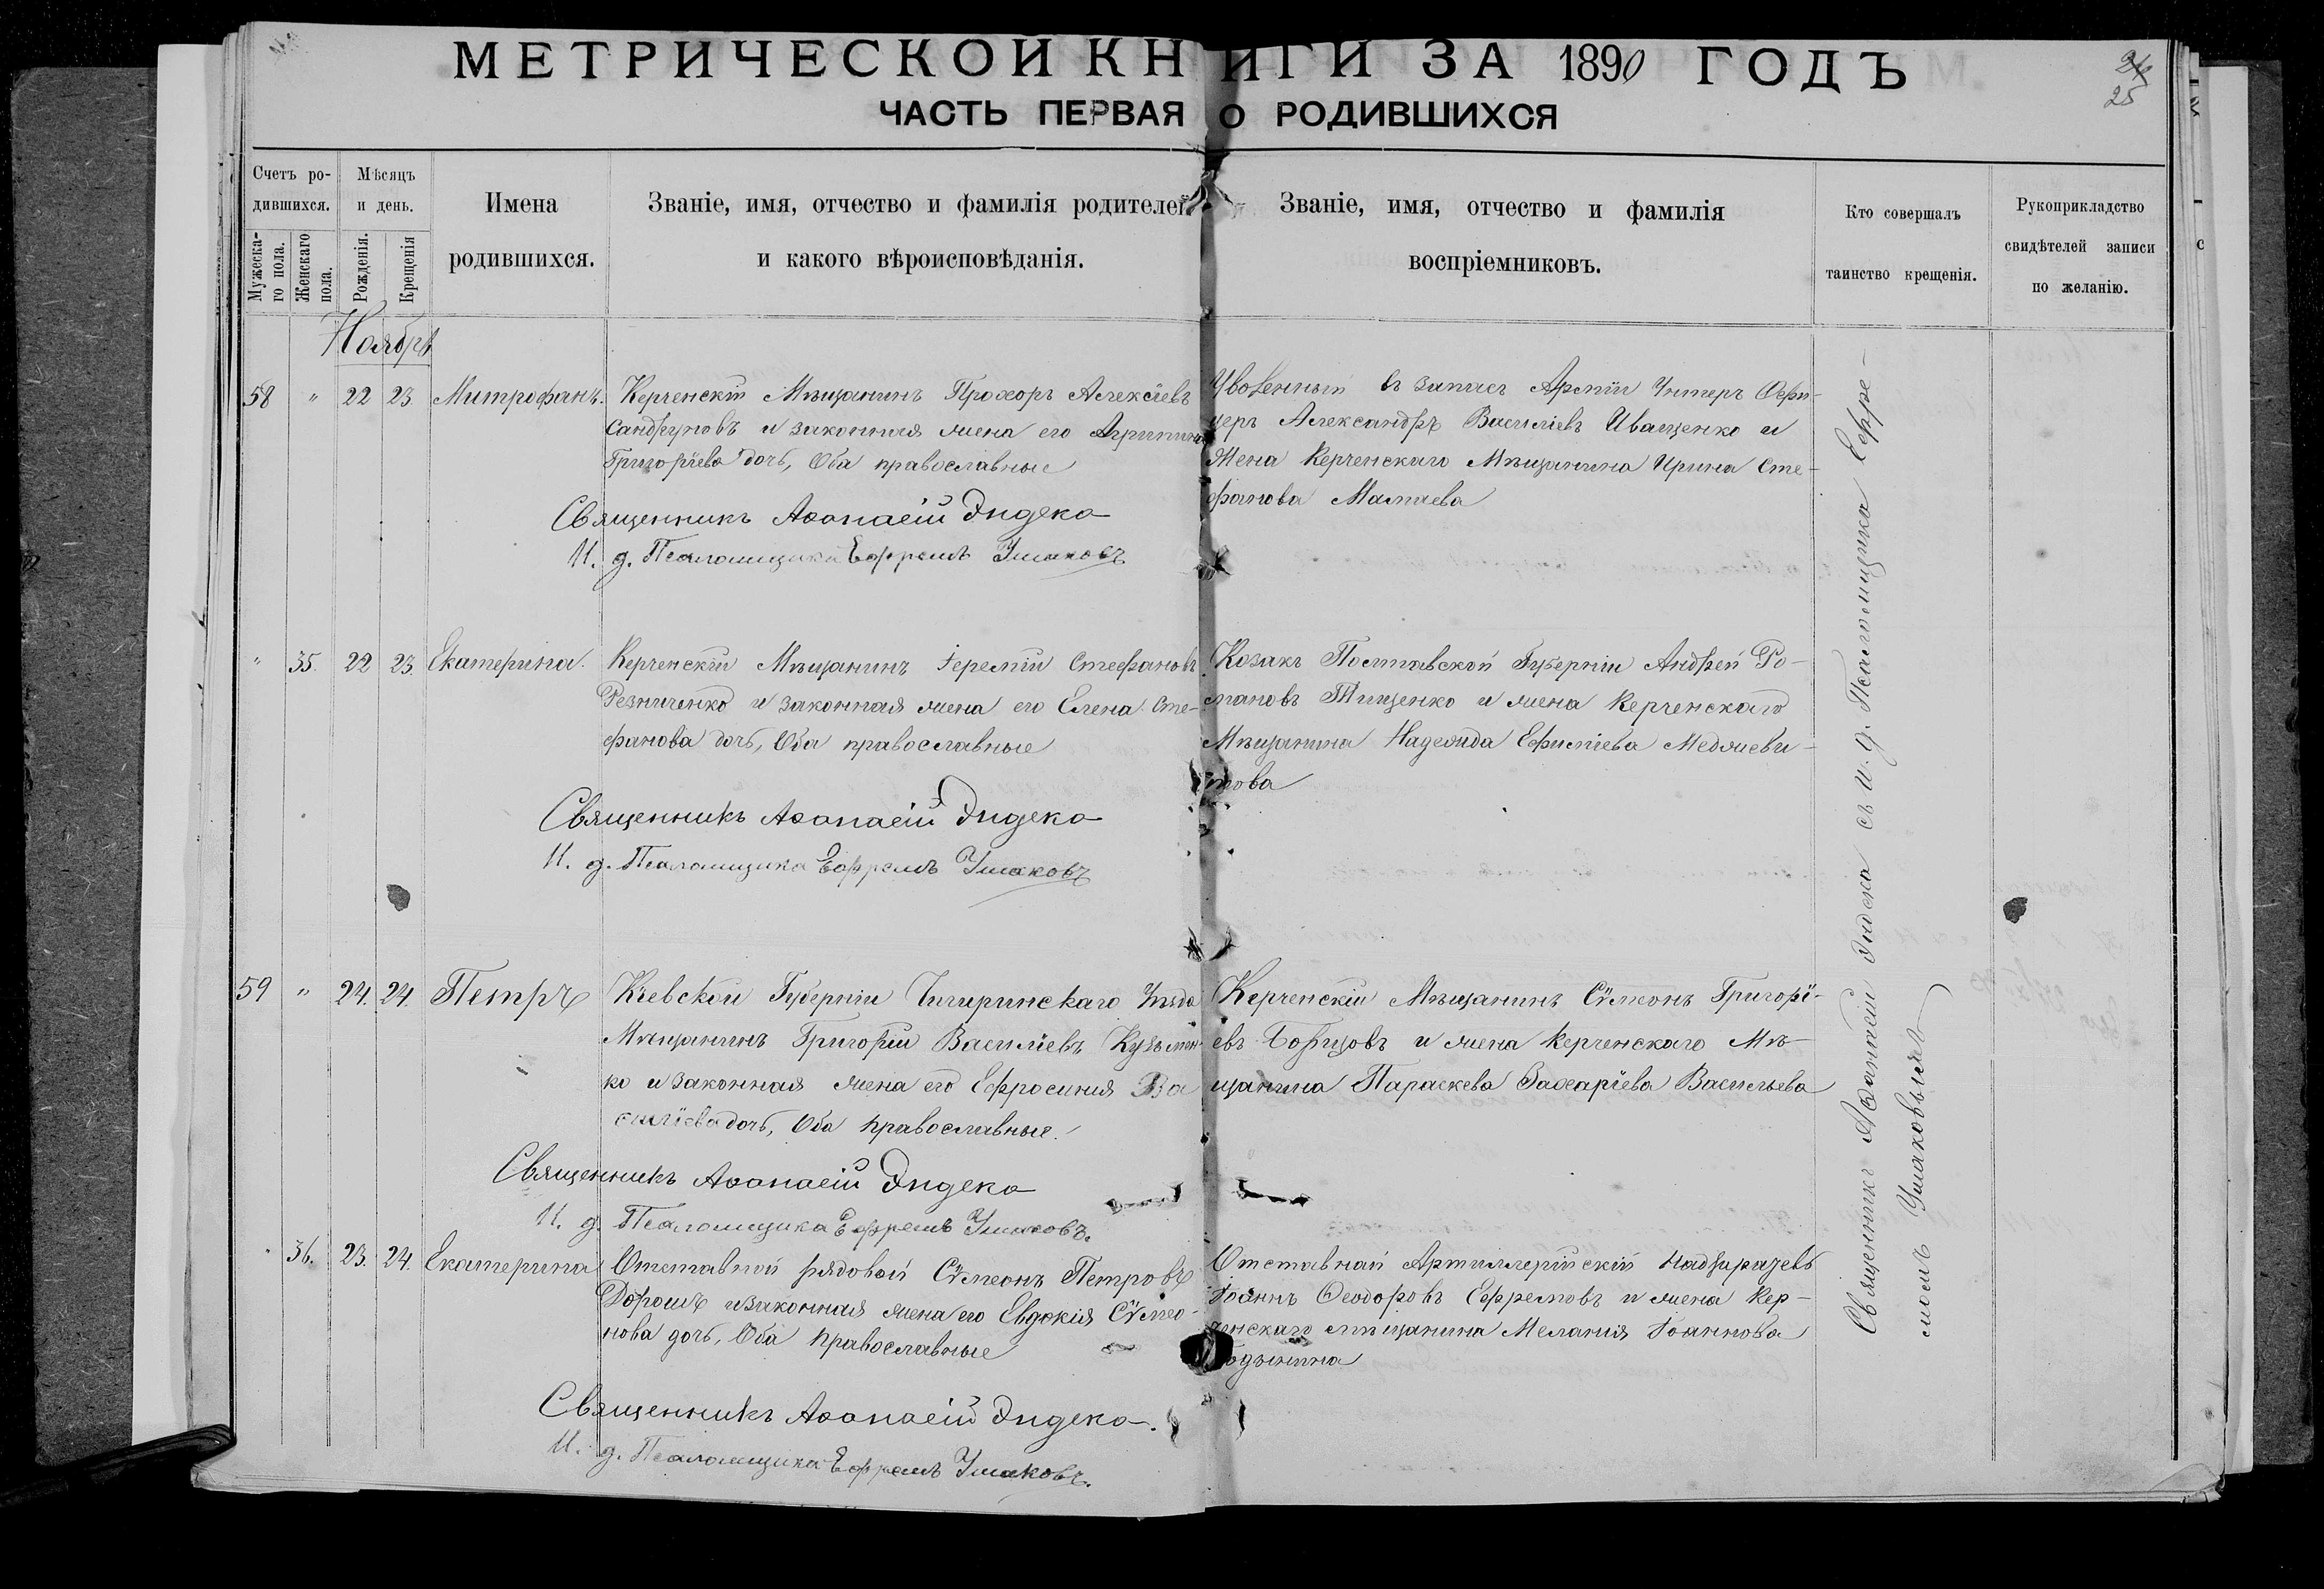 МЕТРИЧЕСКОЙ КНИГИ ЗА 1890 ГОДЪ
25
ЧАСТЬ ПЕРВАЯ О РОДИВШИХСЯ
Счетъ ро-
дившихся.
Мужеска-
го пола.
Женскаго
пола.
Мѣсяцъ
и день.
Рожденія.
Крещенія
Имена
родившихся.
Званіе, имя, отчество и фамилія родителей
и какого вѣроисповѣданія.
Званіе, имя, отчество и фамилія
воспріемниковъ.
Кто совершалъ
таинство крещенія.
Рукоприкладство
свидѣтелей записи
по желанію.
Ноябрь
58 " 22 23 Митрофанъ.
Керченскій Мѣщанинъ Прохоръ Алексіевъ
и законная жена его Агрипина
Григоріева дочь, Оба православные
Священникъ Аѳанасій Эндека
И. д. Псаломщика Ефремъ Ушаковъ
Уволенный въ запасъ Арміи Унтеръ Офи-
церъ Александръ Василіевъ Иващенко и
жена Керченскаго Мѣщанина Ирина Сте-
фанова
" 35. 22 23. Екатерина.
Керченскій Мѣщанинъ Іеремій Стефановъ
Резниченко и законная жена его Елена Сте-
фанова дочь, Оба православные
Священникъ Аѳанасій Эндека
И. д. Псаломщика Ефремъ Ушаковъ
Козакъ Полтавской Губерніи Андрей Ро-
мановъ Тищенко и жена Керченскаго
Мѣщанина Надежда Ефиміева
59 " 24. 24. Петръ
Кіевской Губерніи Чигиринскаго Уѣзда
Мѣщанинъ Григорій Василіевъ Кузьмен-
ко и законная жена его Ефросинія Ва
силіева дочь, Оба православные.
Священникъ Аѳанасій Эндека
И. д. Псаломщика Ефремъ Ушаковъ.
Керченскій Мѣщанинъ Сѵмеонъ Григорі-
евъ и жена Керченскаго Мѣ-
щанина Параскева Захаріева Васильева
" 36. 23. 24. Екатерина
Отставной рядовой Сѵмеонъ Петровъ
Дорошъ и законная жена его Евдокія Сѵмео-
нова дочь, Оба православные
Священникъ Аѳанасій Эндека.
И. д. Псаломщика Ефремъ Ушаковъ.
Отставной Артиллерійскій Надзиратель
Іоаннъ Ѳеодоровъ Ефремовъ и жена Кер-
ченскаго мѣщанина Меланія Іоаннова
Священникъ Аѳанасій Эндека съ И. д. Псаломщика Ефре-
момъ Ушаковымъ